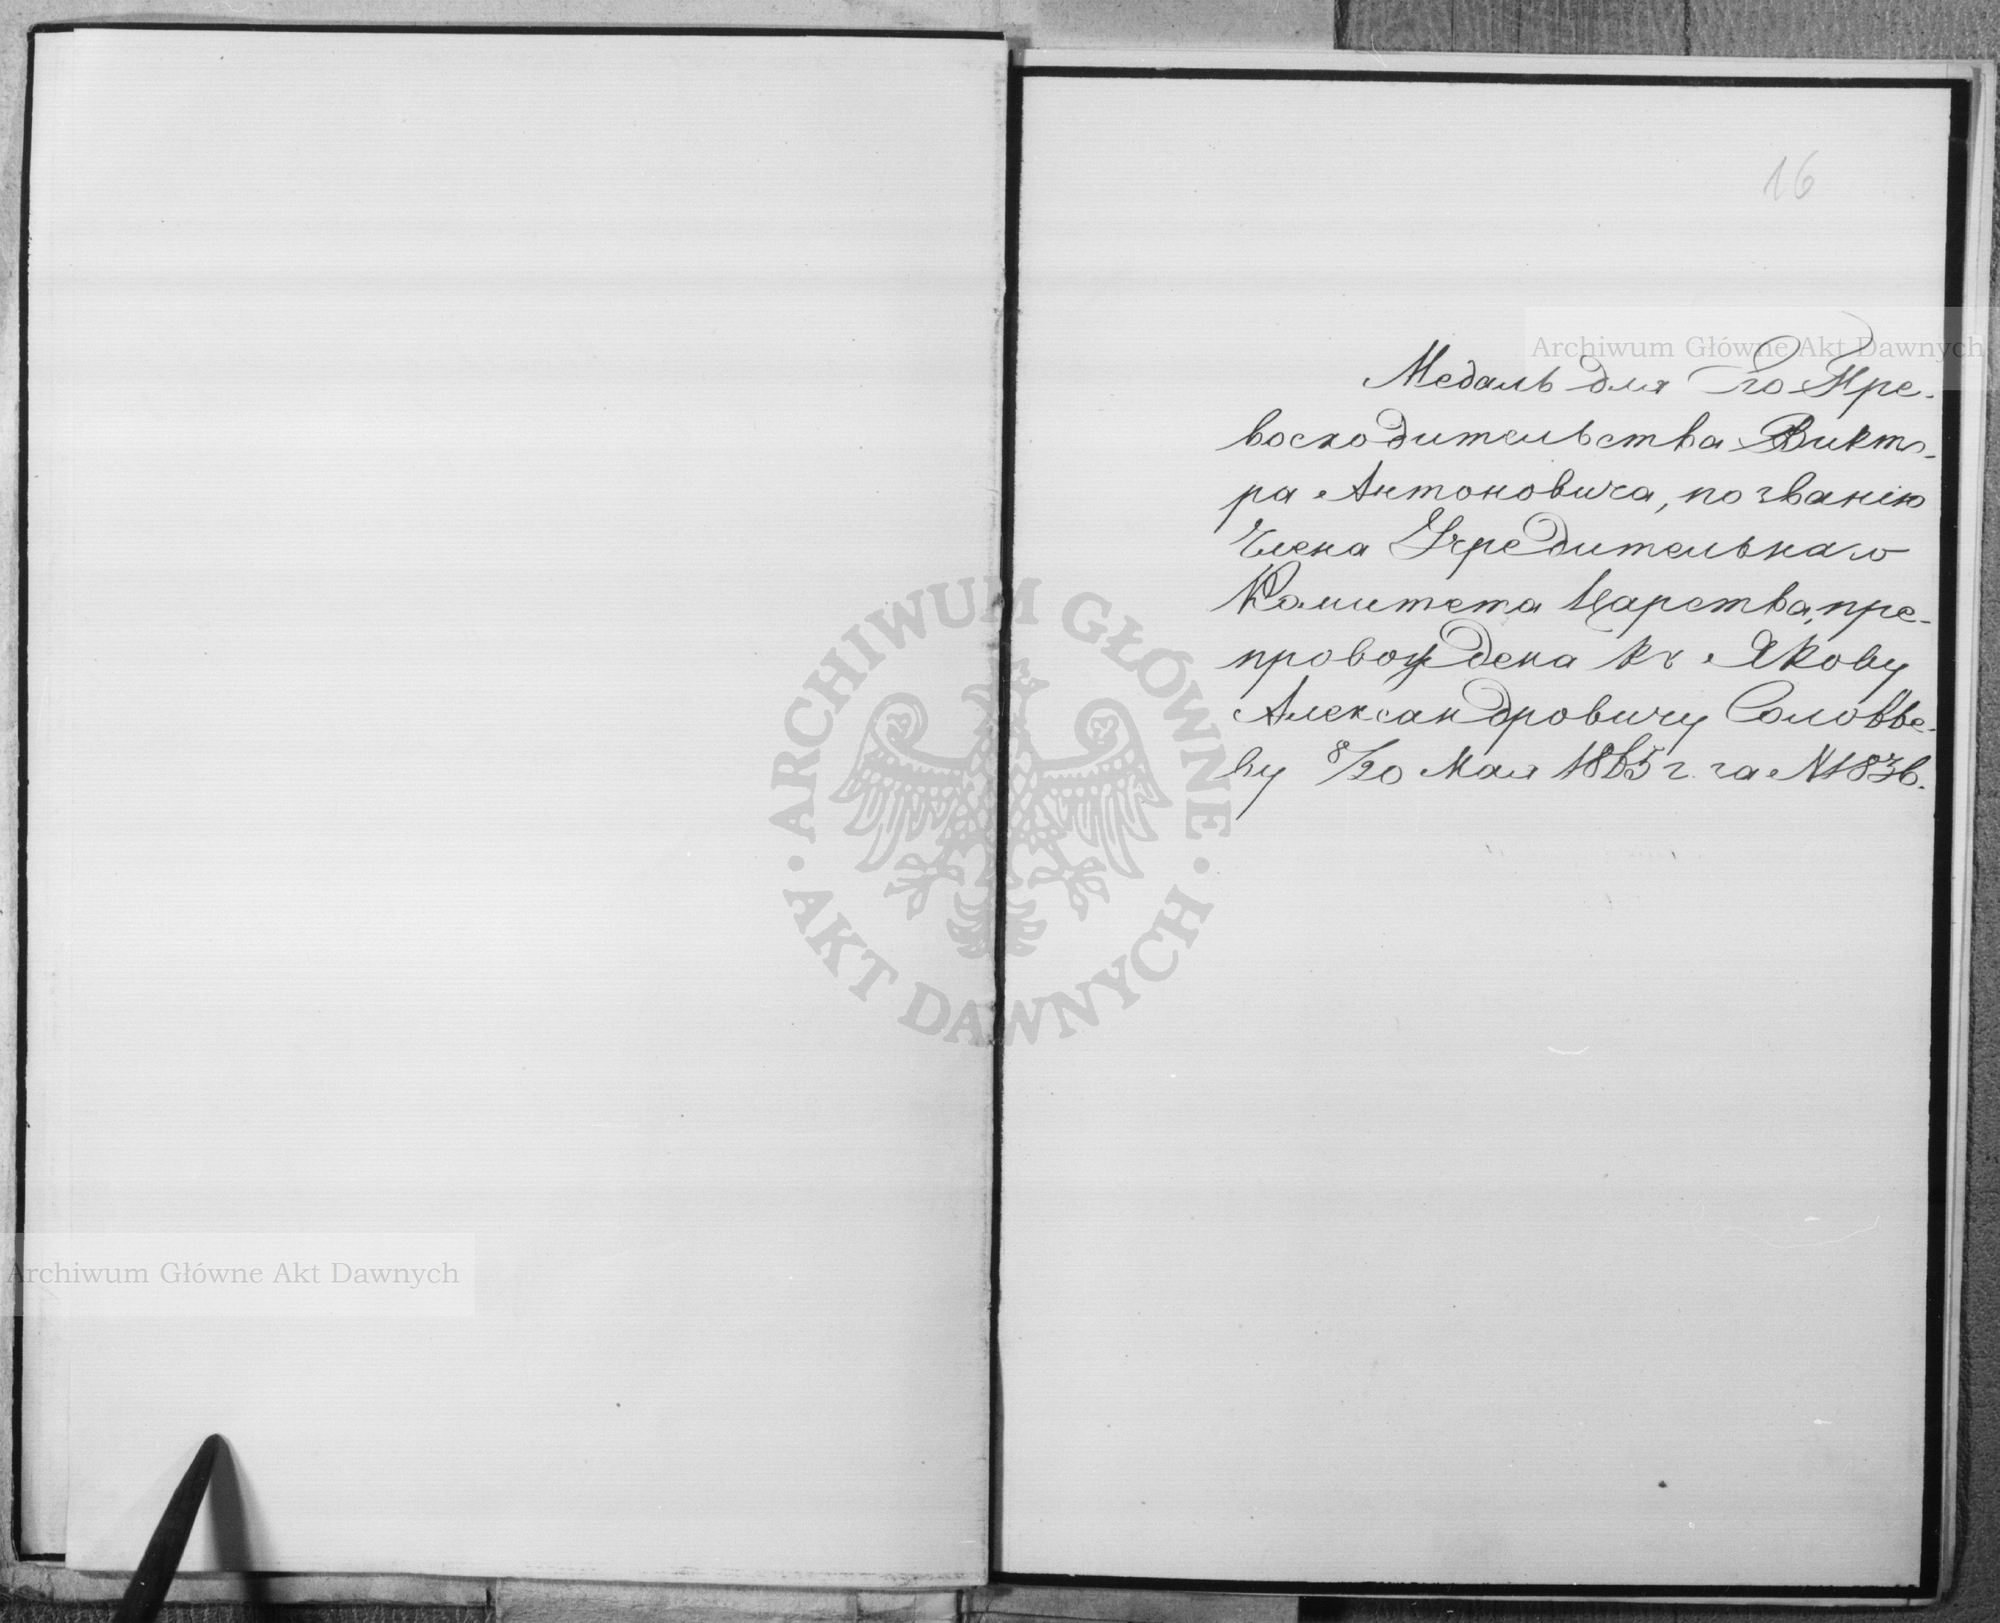 16
Медаль для Его Пре-
восходительства Викто-
ра Антоновича, по званію
Члена Учредительнаго
Комитета Царства, пре-
провождена къ Якову
Александровичу Соловье-
ву 8/20 Мая 1865 г. за № 1836.
Archiwum Główne Akt Dawnych
ARCHIWUM GŁÓWNE
AKT DAWNYCH
Archiwum Główne Akt Dawnych